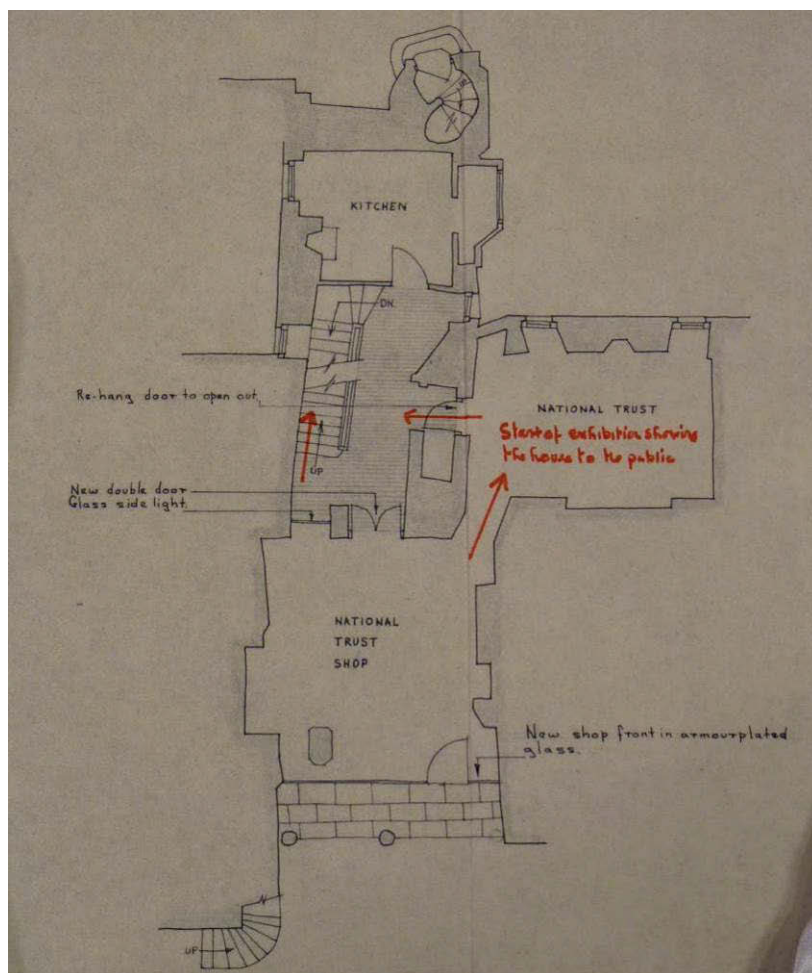 KITCHEN
DN.
Re-hang door to open out.
NATIONAL TRUST
Start of exhibition showing
the house to the public
UP
New double door
Glass side light.
NATIONAL
TRUST
SHOP
New shop front in armourplated
glass.
UP